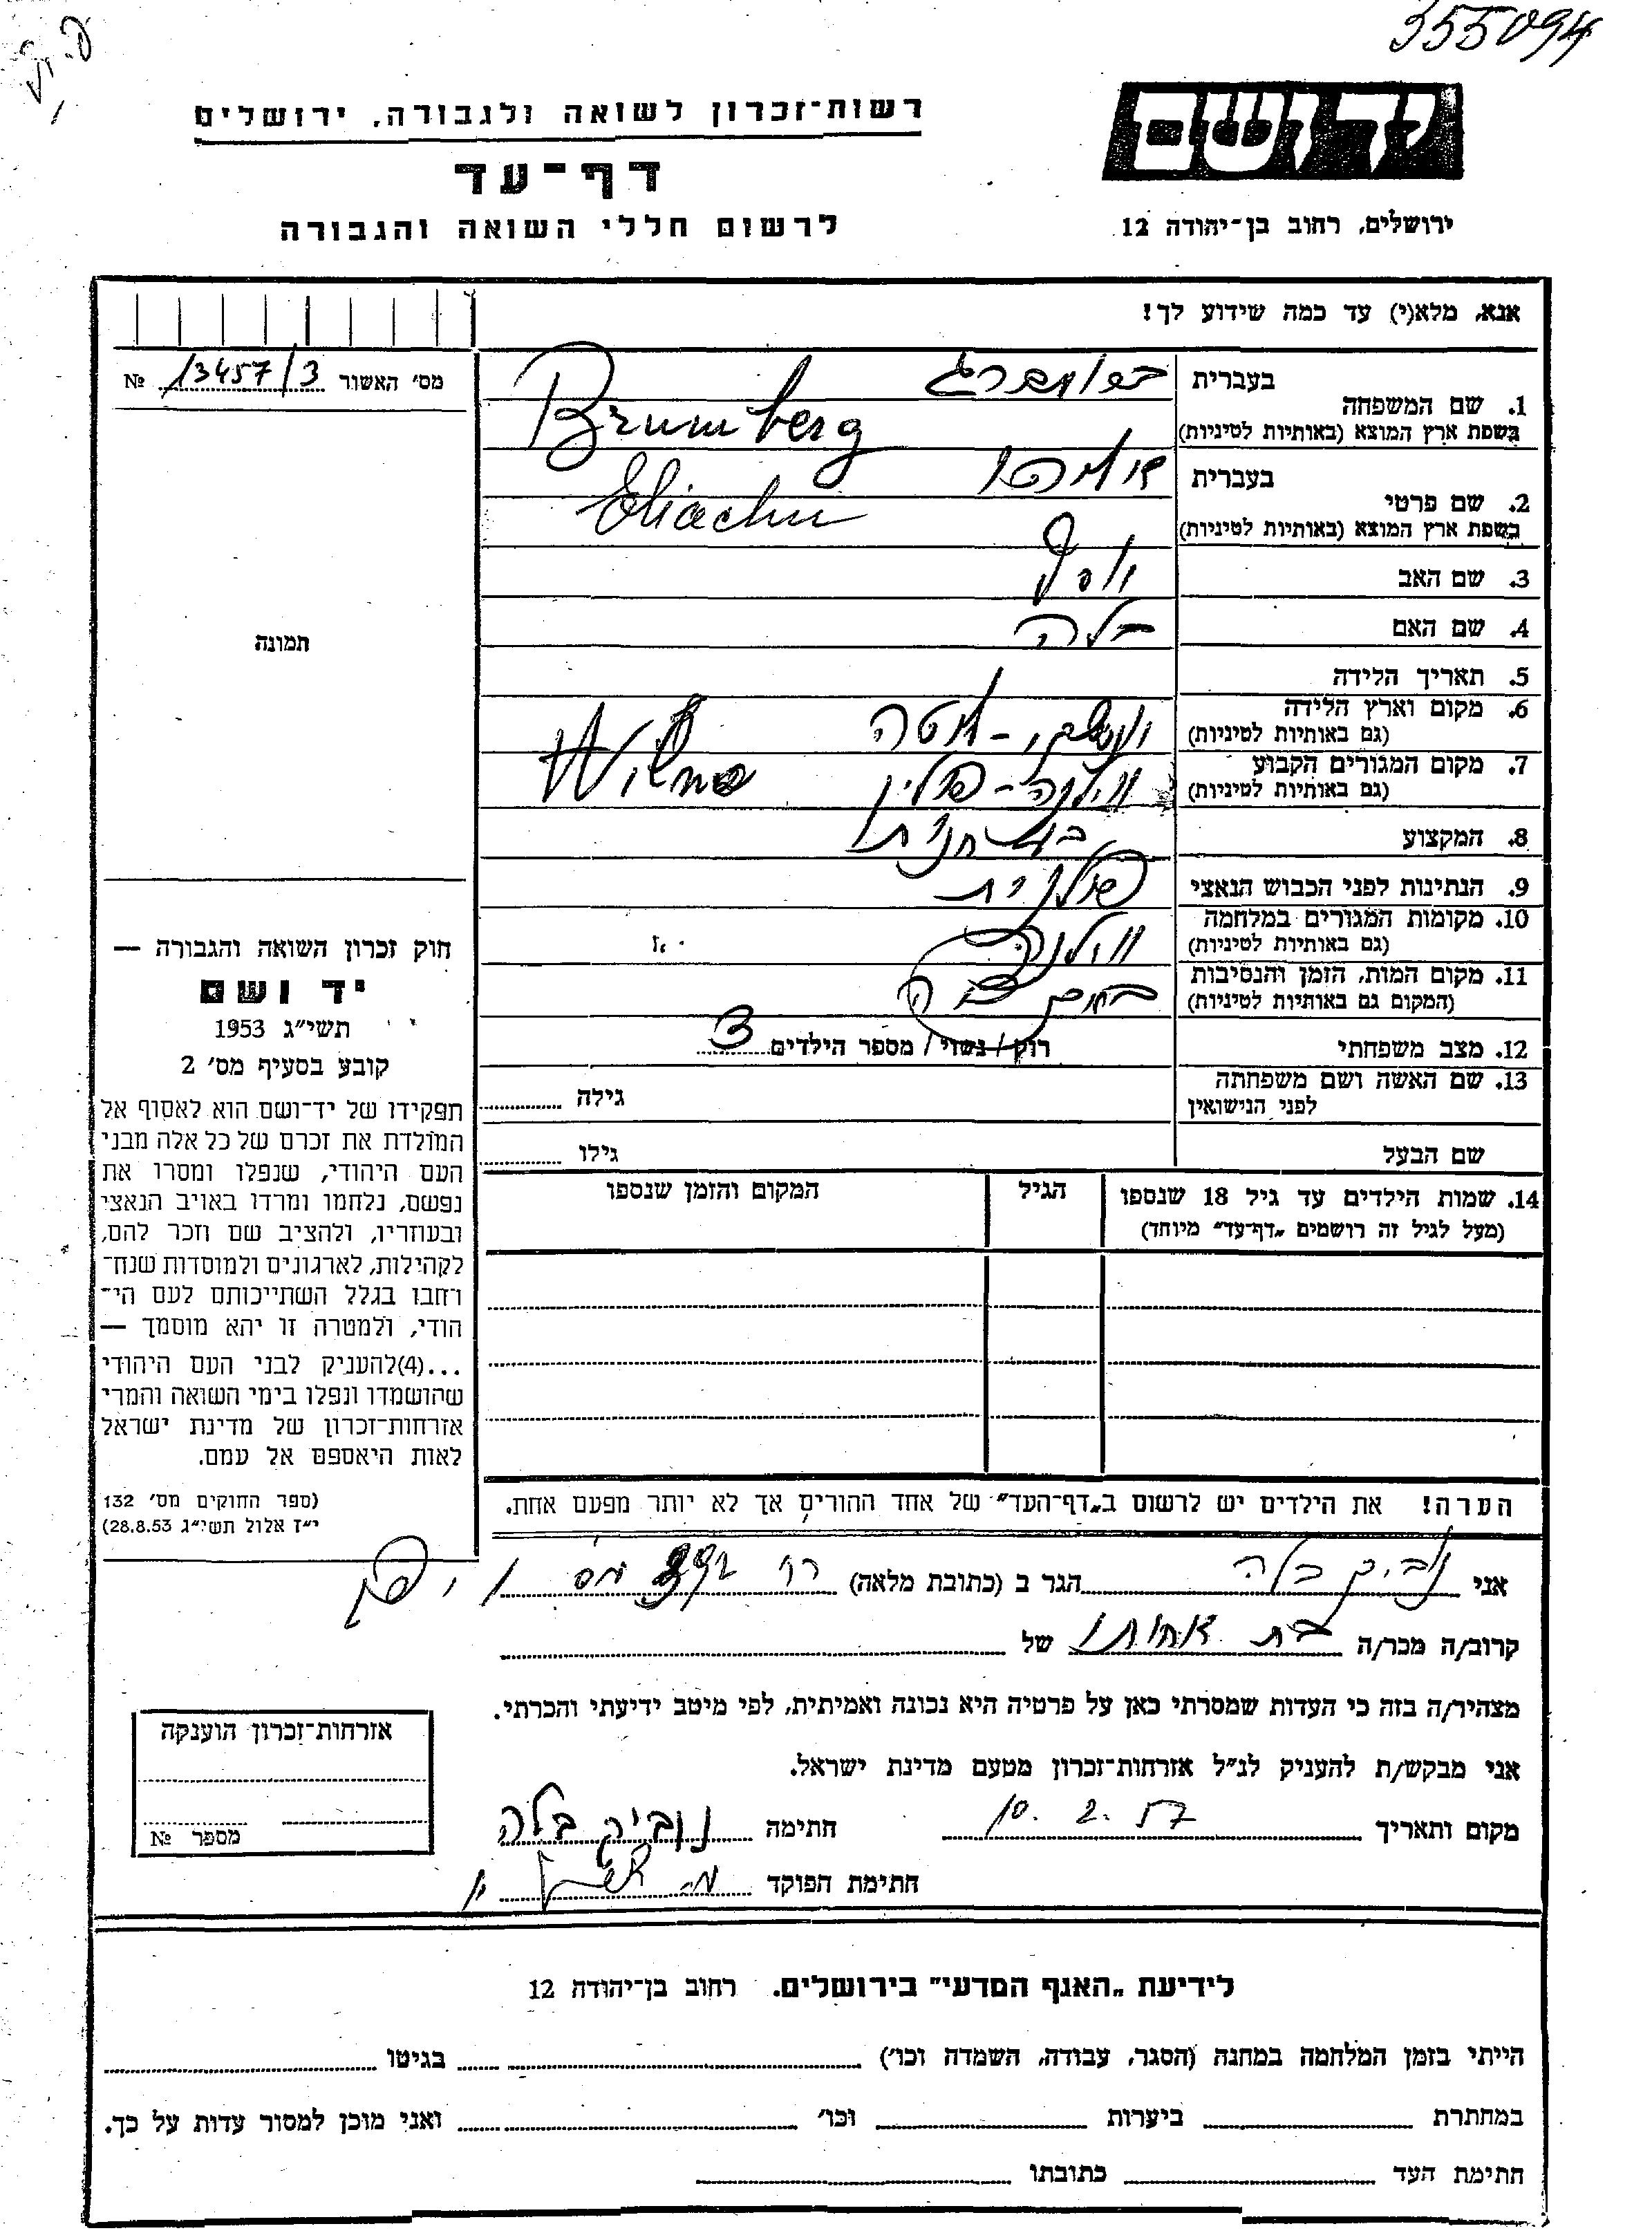 355094
רשות־זכרון לשואה ולגבורה, ירושלים
יד ושם
דף־עד
לרשום חללי השואה והגבורה
ירושלים, רחוב בן־יהודה 12
אנא, מלא(י) עד כמה שידוע לך!
מס׳ האשור 13457/3 №
1. שם המשפחה
בעברית ברומברג
בשפת ארץ המוצא (באותיות לטיניות) Brumberg
2. שם פרטי
בעברית אליהו
בשפת ארץ המוצא (באותיות לטיניות) Eliachu
3. שם האב יוסף
4. שם האם בלה
5. תאריך הלידה
6. מקום וארץ הלידה
(גם באותיות לטיניות)
7. מקום המגורים הקבוע
(גם באותיות לטיניות) וילנה - פולין Wilno
8. המקצוע בעל חנות
9. הנתינות לפני הכבוש הנאצי פולנית
10. מקומות המגורים במלחמה
(גם באותיות לטיניות) וילנה
11. מקום המות, הזמן והנסיבות
(המקום גם באותיות לטיניות)
12. מצב משפחתי רוק / נשוי / מספר הילדים 3
13. שם האשה ושם משפחתה
לפני הנישואין
גילה
שם הבעל
גילו
14. שמות הילדים עד גיל 18 שנספו
(מעל לגיל זה רושמים „דף־עד״ מיוחד)
הגיל
המקום והזמן שנספו
הערה! את הילדים יש לרשום ב„דף־העד״ של אחד ההורים אך לא יותר מפעם אחת.
תמונה
חוק זכרון השואה והגבורה —
יד ושם
תשי״ג 1953
קובע בסעיף מס׳ 2
תפקידו של יד־ושם הוא לאסוף אל
המולדת את זכרם של כל אלה מבני
העם היהודי, שנפלו ומסרו את
נפשם, נלחמו ומרדו באויב הנאצי
ובעוזריו, ולהציב שם וזכר להם,
לקהילות, לארגונים ולמוסדות שנח־
רחבו בגלל השתייכותם לעם הי־
הודי, ולמטרה זו יהא מוסמך —
...(4) להעניק לבני העם היהודי
שהושמדו ונפלו בימי השואה והמרי
אזרחות־זכרון של מדינת ישראל
לאות היאספם אל עמם.
(ספר החוקים מס׳ 132
י״ז אלול תשי״ג 28.8.53)
אני נוביק בלה הגר ב (כתובת מלאה)
קרוב/ה מכר/ה בת אחותו של
מצהיר/ה בזה כי העדות שמסרתי כאן על פרטיה היא נכונה ואמיתית, לפי מיטב ידיעתי והכרתי.
אני מבקש/ת להעניק לנ״ל אזרחות־זכרון מטעם מדינת ישראל.
מקום ותאריך 10. 2. 57 חתימה נוביק בלה
חתימת הפוקד
אזרחות־זכרון הוענקה
מספר №
לידיעת „האגף המדעי״ בירושלים. רחוב בן־יהודה 12
הייתי בזמן המלחמה במחנה (הסגר, עבודה, השמדה וכו׳) בגיטו
במחתרת ביערות וכו׳ ואני מוכן למסור עדות על כך.
חתימת העד כתובתו